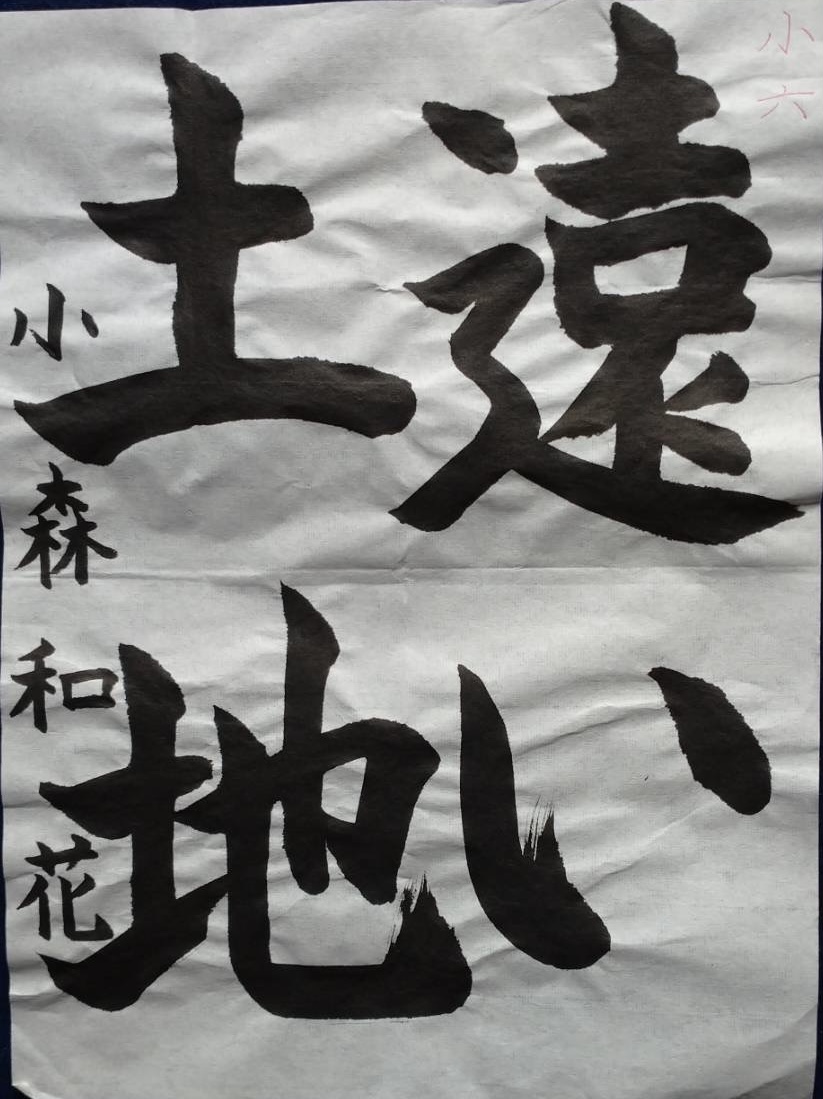 小六
遠い
土地
小森和花